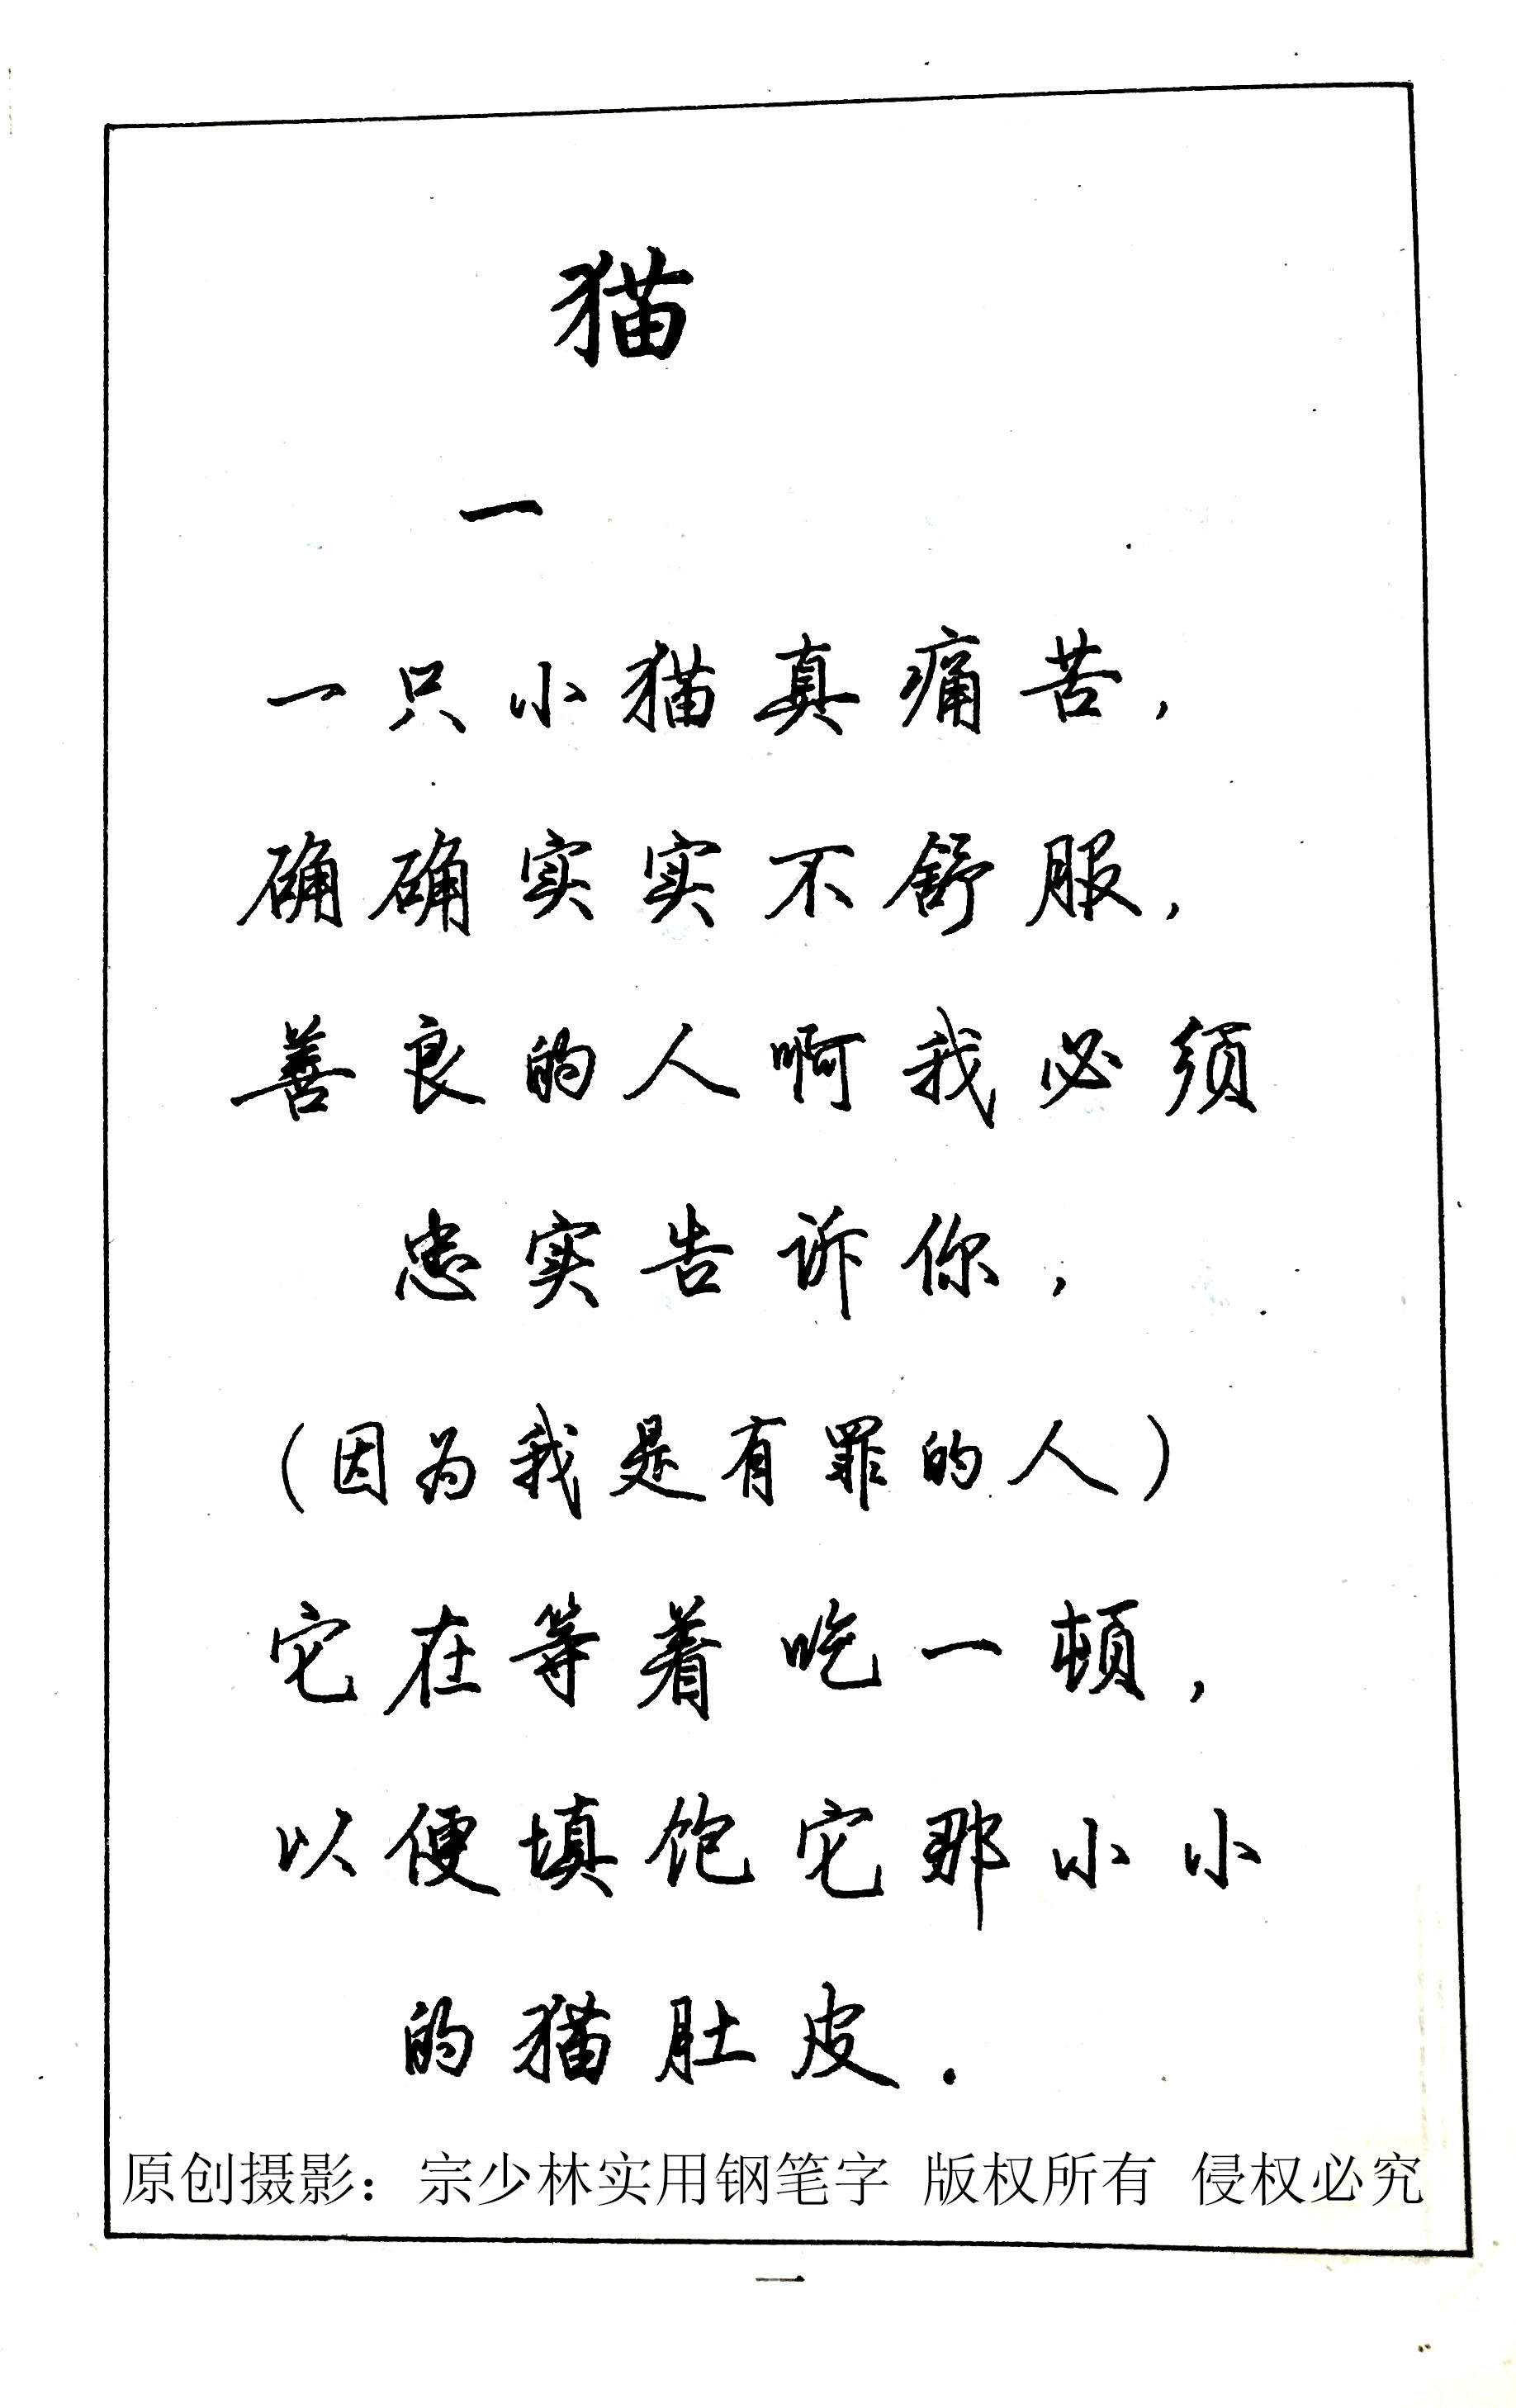 猫
一
一只小猫真痛苦，
确确实实不舒服，
善良的人啊我必须
忠实告诉你，
（因为我是有罪的人）
它在等着吃一顿，
以便填饱它那小小
的猫肚皮．
原创摄影：宗少林实用钢笔字 版权所有 侵权必究
一